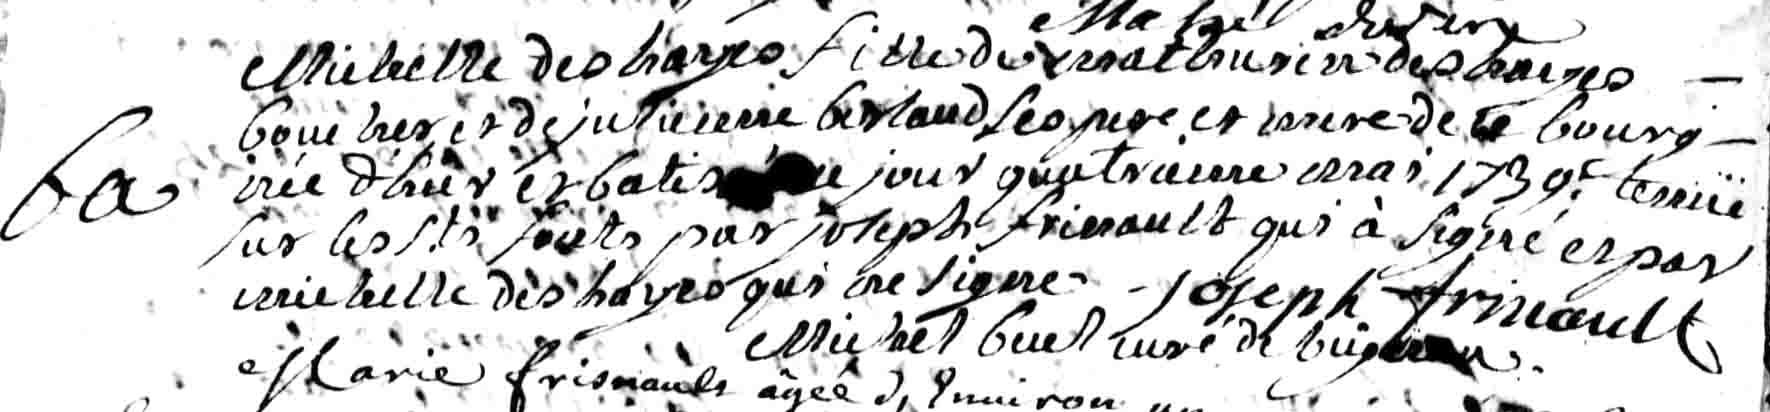 Michelle deshayes fille de mathurin deshayes
boucher et de julienne berland ses pere et mere de ce bourg
née d'hier et batisée jour quatrieme mai 1739 tenüe
sur les sts fonts par joseph frinault qui à signé et par
michelle deshayes qui ne signe Joseph frinault
Michel buel curé de
Marie frisnault âgée d'environ un
ba